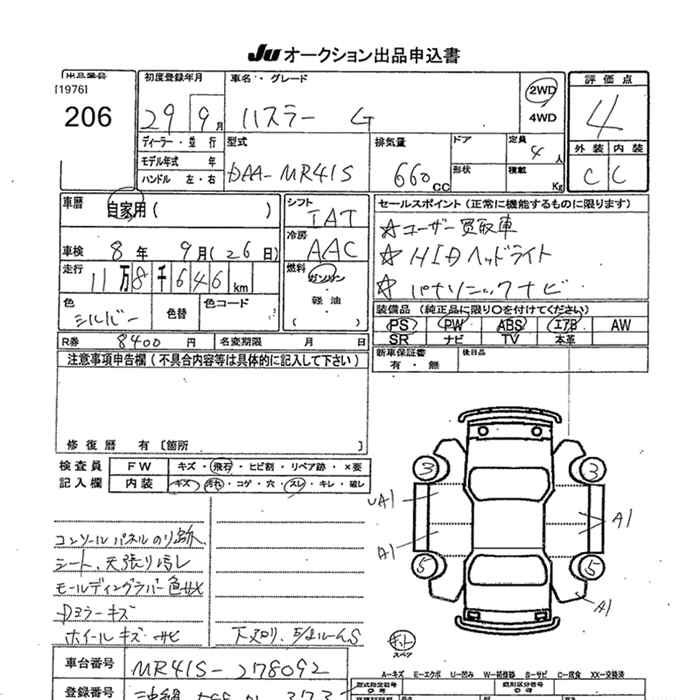 Ju オークション出品申込書
出品番号
[1976]
206
初度登録年月
29 9月
車名・グレード
ハスラー G
2WD
4WD
評価点
4
外装 内装
C C
ディーラー・並行
モデル年式 年
ハンドル 左・右
型式
DAA-MR41S
排気量
660CC
ドア
形状
定員
4人
積載
Kg
車歴
自家用 ( )
車検 8年 9月 (26日)
走行 11万8千646km
色
シルバー
色替
色コード
シフト
IAT
冷房
AAC
燃料
ガソリン
・
軽油
( )
セールスポイント (正常に機能するものに限ります)
☆ユーザー買取車
☆HIDヘッドライト
☆パナソニックナビ
装備品 (純正品に限り○を付けてください)
PS PW ABS エアB AW
SR ナビ TV 本革
新車保証書
有・無
後日品
R券 8400円 名変期限 月 日
注意事項申告欄 (不具合内容等は具体的に記入して下さい)
修復歴 有 〔箇所 〕
検査員
記入欄
FW キズ・飛石・ヒビ割・リペア跡・×要
内装 キズ・汚れ・コゲ・穴・スレ・キレ・破レ
コンソールパネルのり跡、
シート、天張り汚レ
モールディングラバー色
Dミラーキズ
ホイールキズ・サビ
3 3
UA1
A1
A1
5 5
A1
スペア
A-キズ E-エクボ U-凹み W-補修跡 S-サビ C-腐食 XX-交換済
車台番号 MR41S-278092
登録番号 沖縄
型式指定番号
類別区分番号